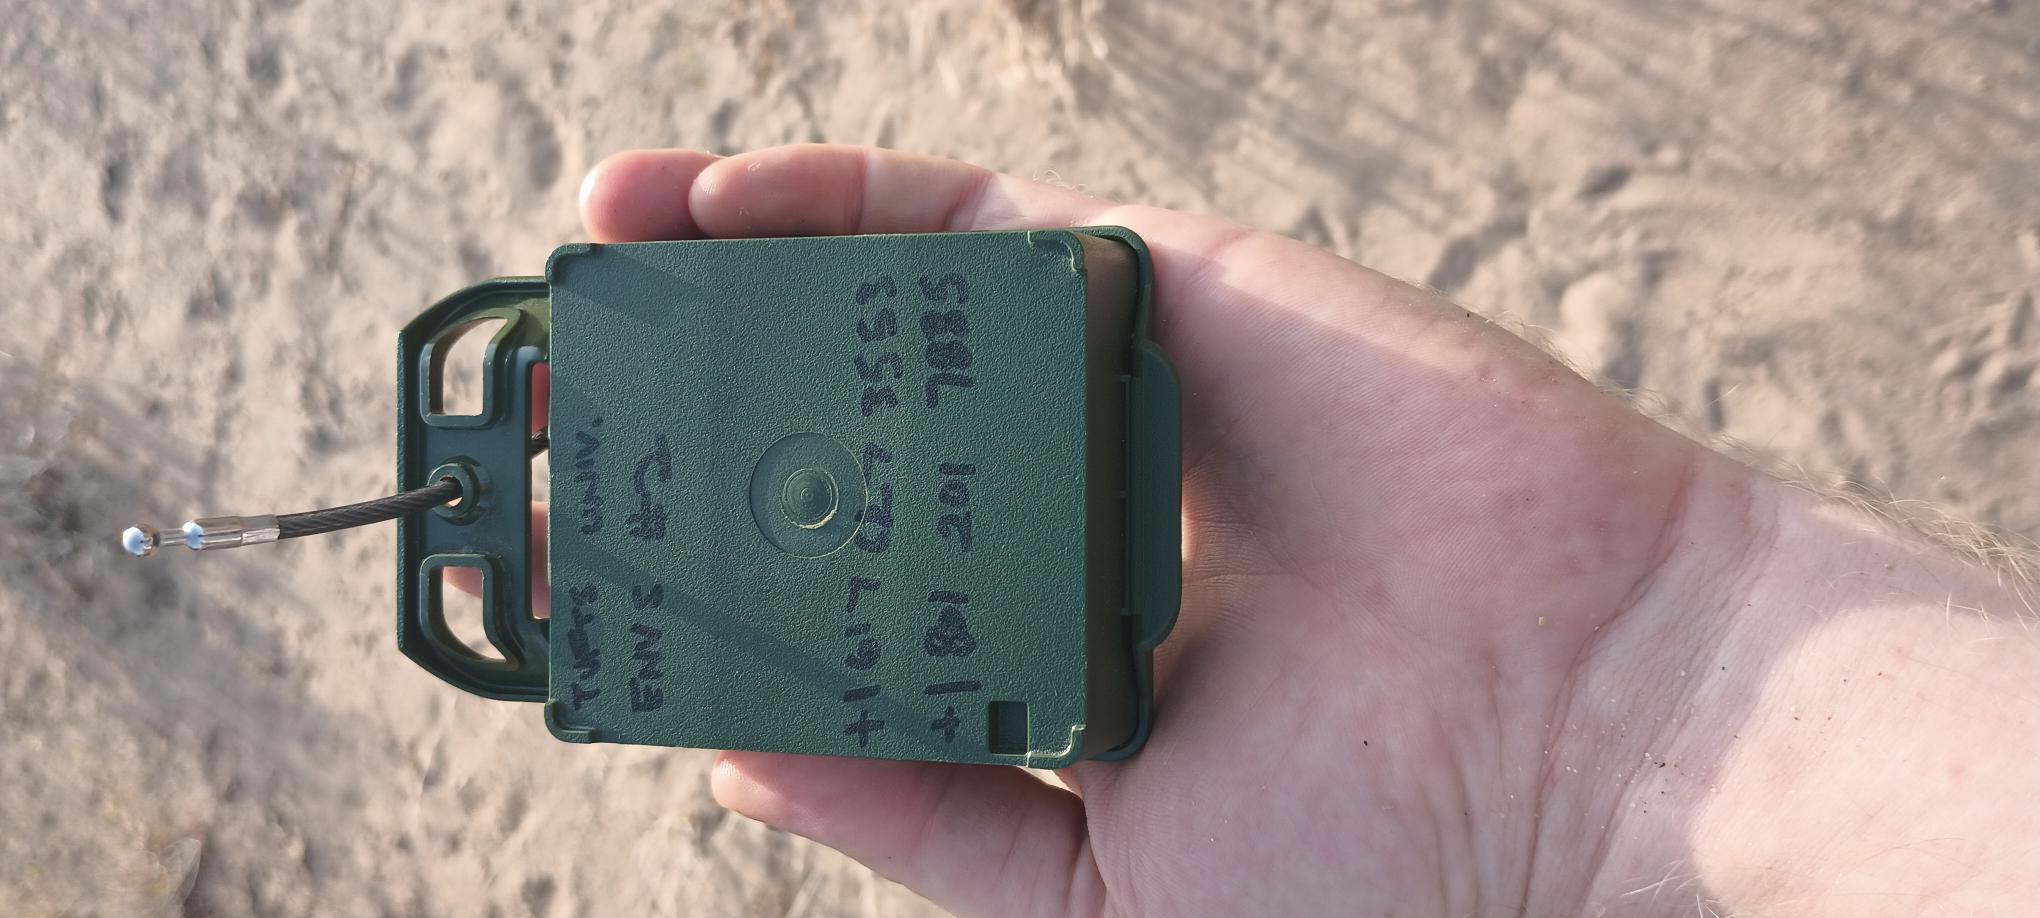 TUFTS UNIV.
ENVS #2
+1 617 627 3553
+1 801 201 7885